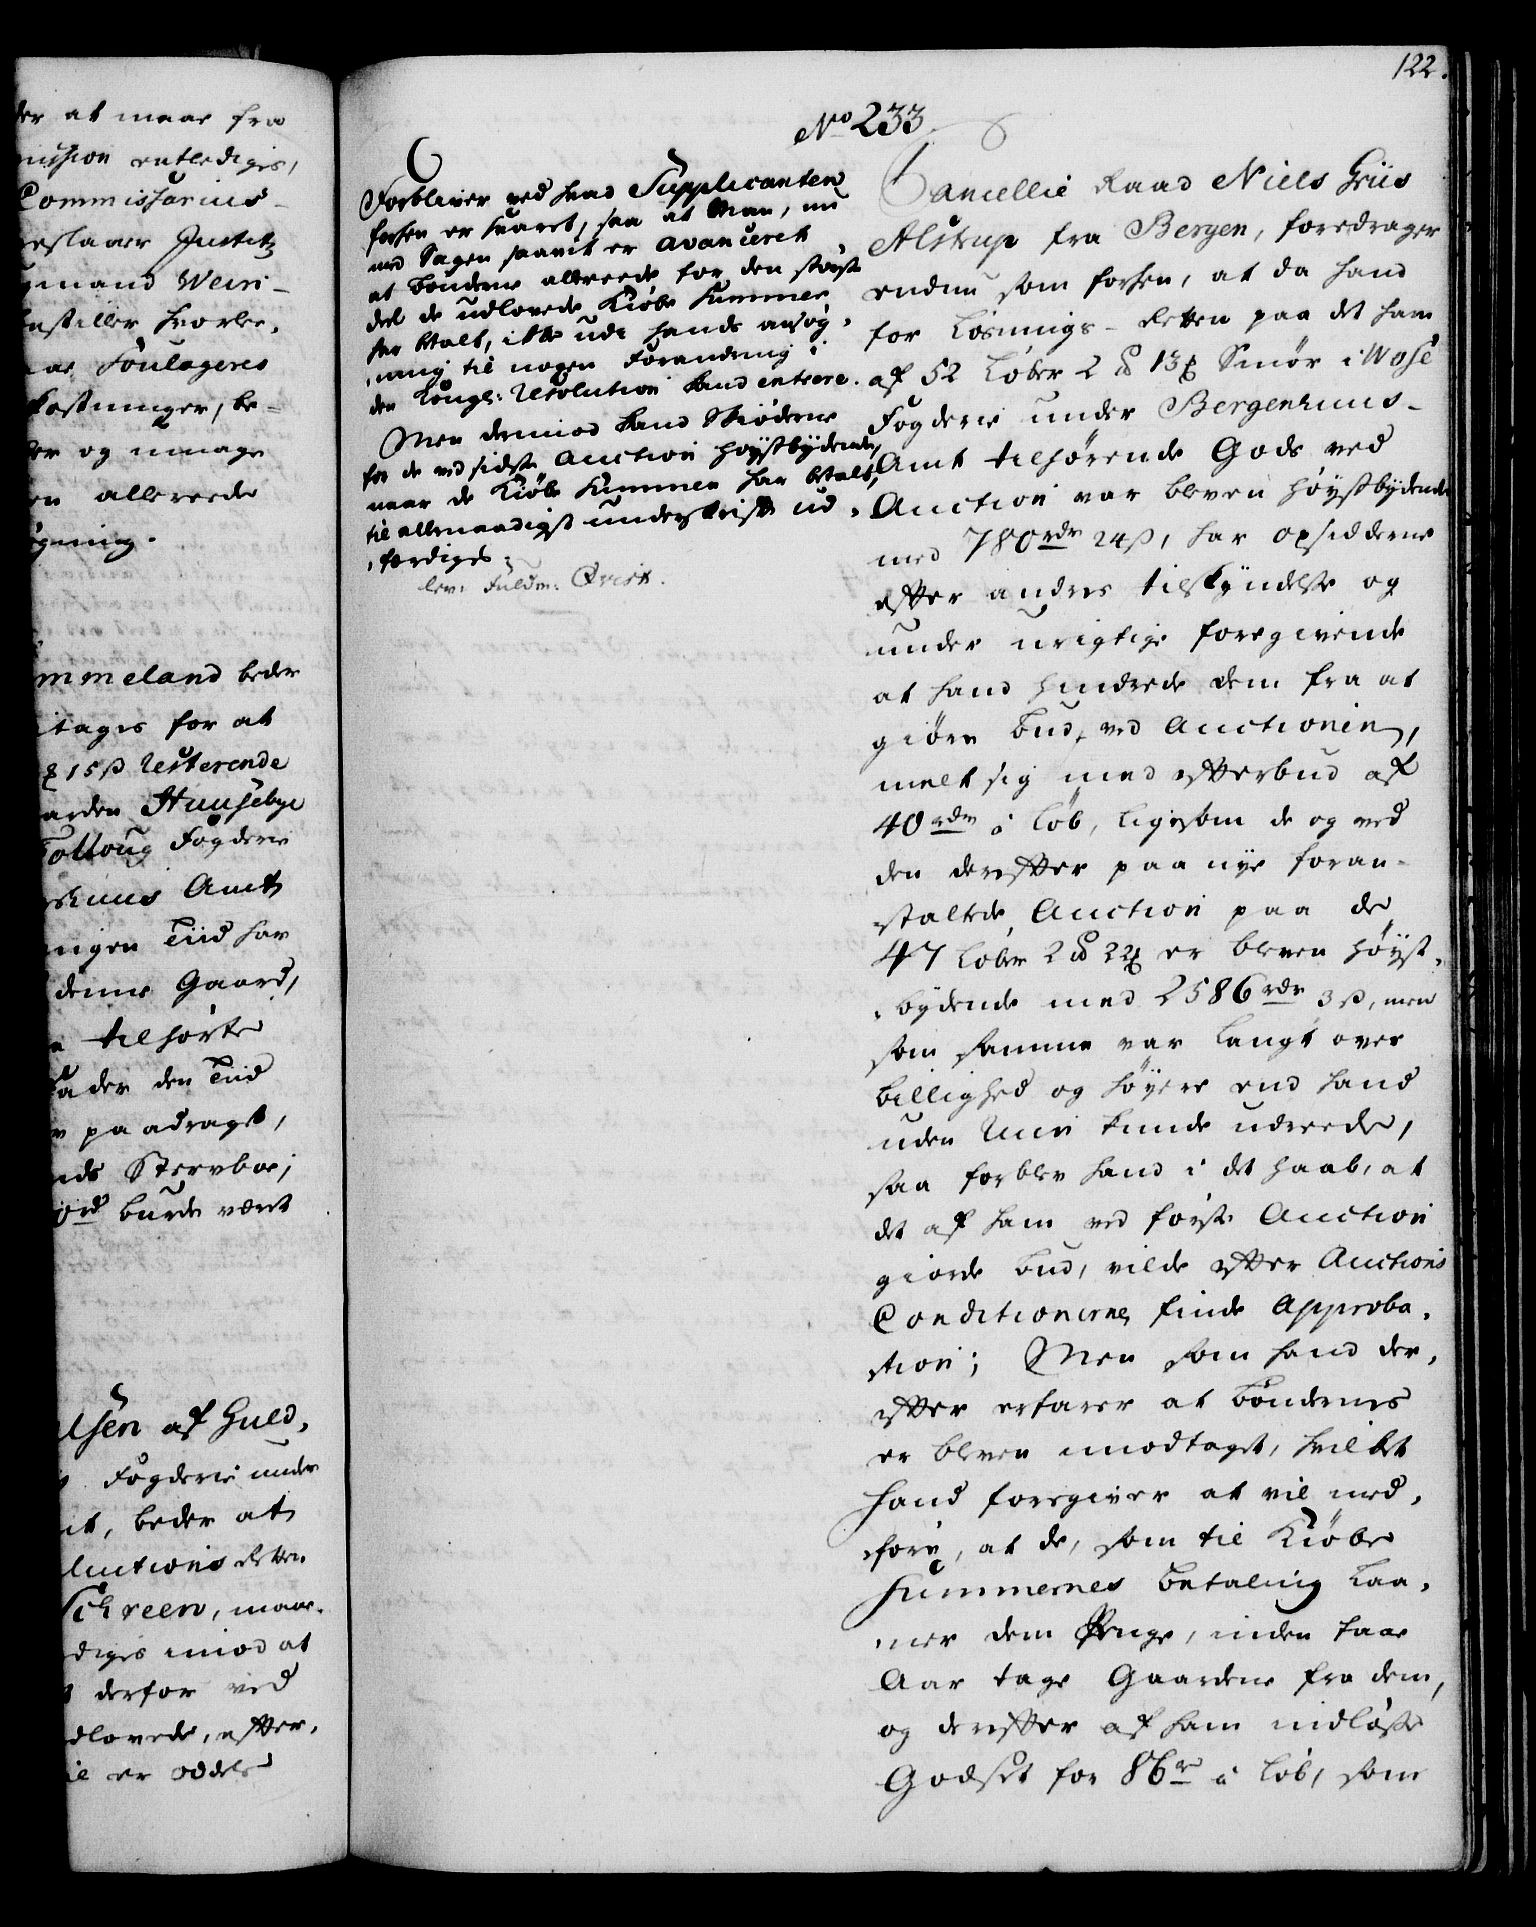 122.
der at maae fra
mission entlediges,
Commissarius
Justitz
mand Wein-
instiller hvorle,
Föulageres
kostninger, be-
og
allereede
mmeland beder
itages for at
15 ß Resterende
aarden Huusebye
Tolloug Fogderie
huus Amt
Tiid har
denne Gaard,
tilhørte
der den Tiid
paadraget,
Stervboe;
burde været
lsen af Guld,
Fogderie under
beder at
Auctions Retten
Schreen, maae
imod at
derfor ved
udlovede, effter,
er oddels
No 233.
Forbliver ved hvad Supplicanten
forhen er svaret, saa at Man, nu
med Sagen saavit er avanceret
at bönderne allereede for den störste
deel de udlovede Kiöbe Summer
har betalt, ikke udi hands ansög,
,ning til nogen Forandring i
den Kongl: Resolution kand entrere.
Men derimod kand Skiöderne
for de ved sidste Auction höystbydende,
naar de Kiöbe Summen har betalt,
til allernaadigst underskrift ud,
,færdiges;
lev: Fuldm: Qvist.
Cancellie Raad Niels Griis
Alstrup fra Bergen, foredrager
endnu som forhen, at da hand
for Løsnings-Retten paa det ham
af 52 Løber 2 ℔ 13 Smör i Wose
Fogderie under Bergenhuus-
Amt tilhørende Gods ved
Auction var bleven höystbydende
med 780 rdr 24 ß, har opsidderne
effter andres tilskyndelse og
under urigtige foregivende
at hand hindrede dem fra at
giöre bud, ved Auctionen,
melt sig med effterbud af
40 rdr á Løb, ligesom de og ved
den dereffter paa nye foran-
staltede Auction paa de
47 Løber 2 ℔ 22 er bleven höyst,
,bydende med 2586 rdr 3 ß, men
som samme var langt over
billighed og höyere end hand
uden Ruin kunde udreede,
saa forblev hand i det haab, at
det af ham ved første Auction
giorde bud, vilde effter Auctions
Conditionerne finde Approba,
,tion; Men som hand der,
effter erfarer at bøndernes
er bleven imodtaget, hvilket
hand foregiver at vil med,
,føre, at de, som til Kiöbe
Summernes betaling laa,
,ner dem Penge, inden faae
Aar tage Gaardene fra dem,
og dereffter af ham indløste
Godset for 86 r á Løb, som